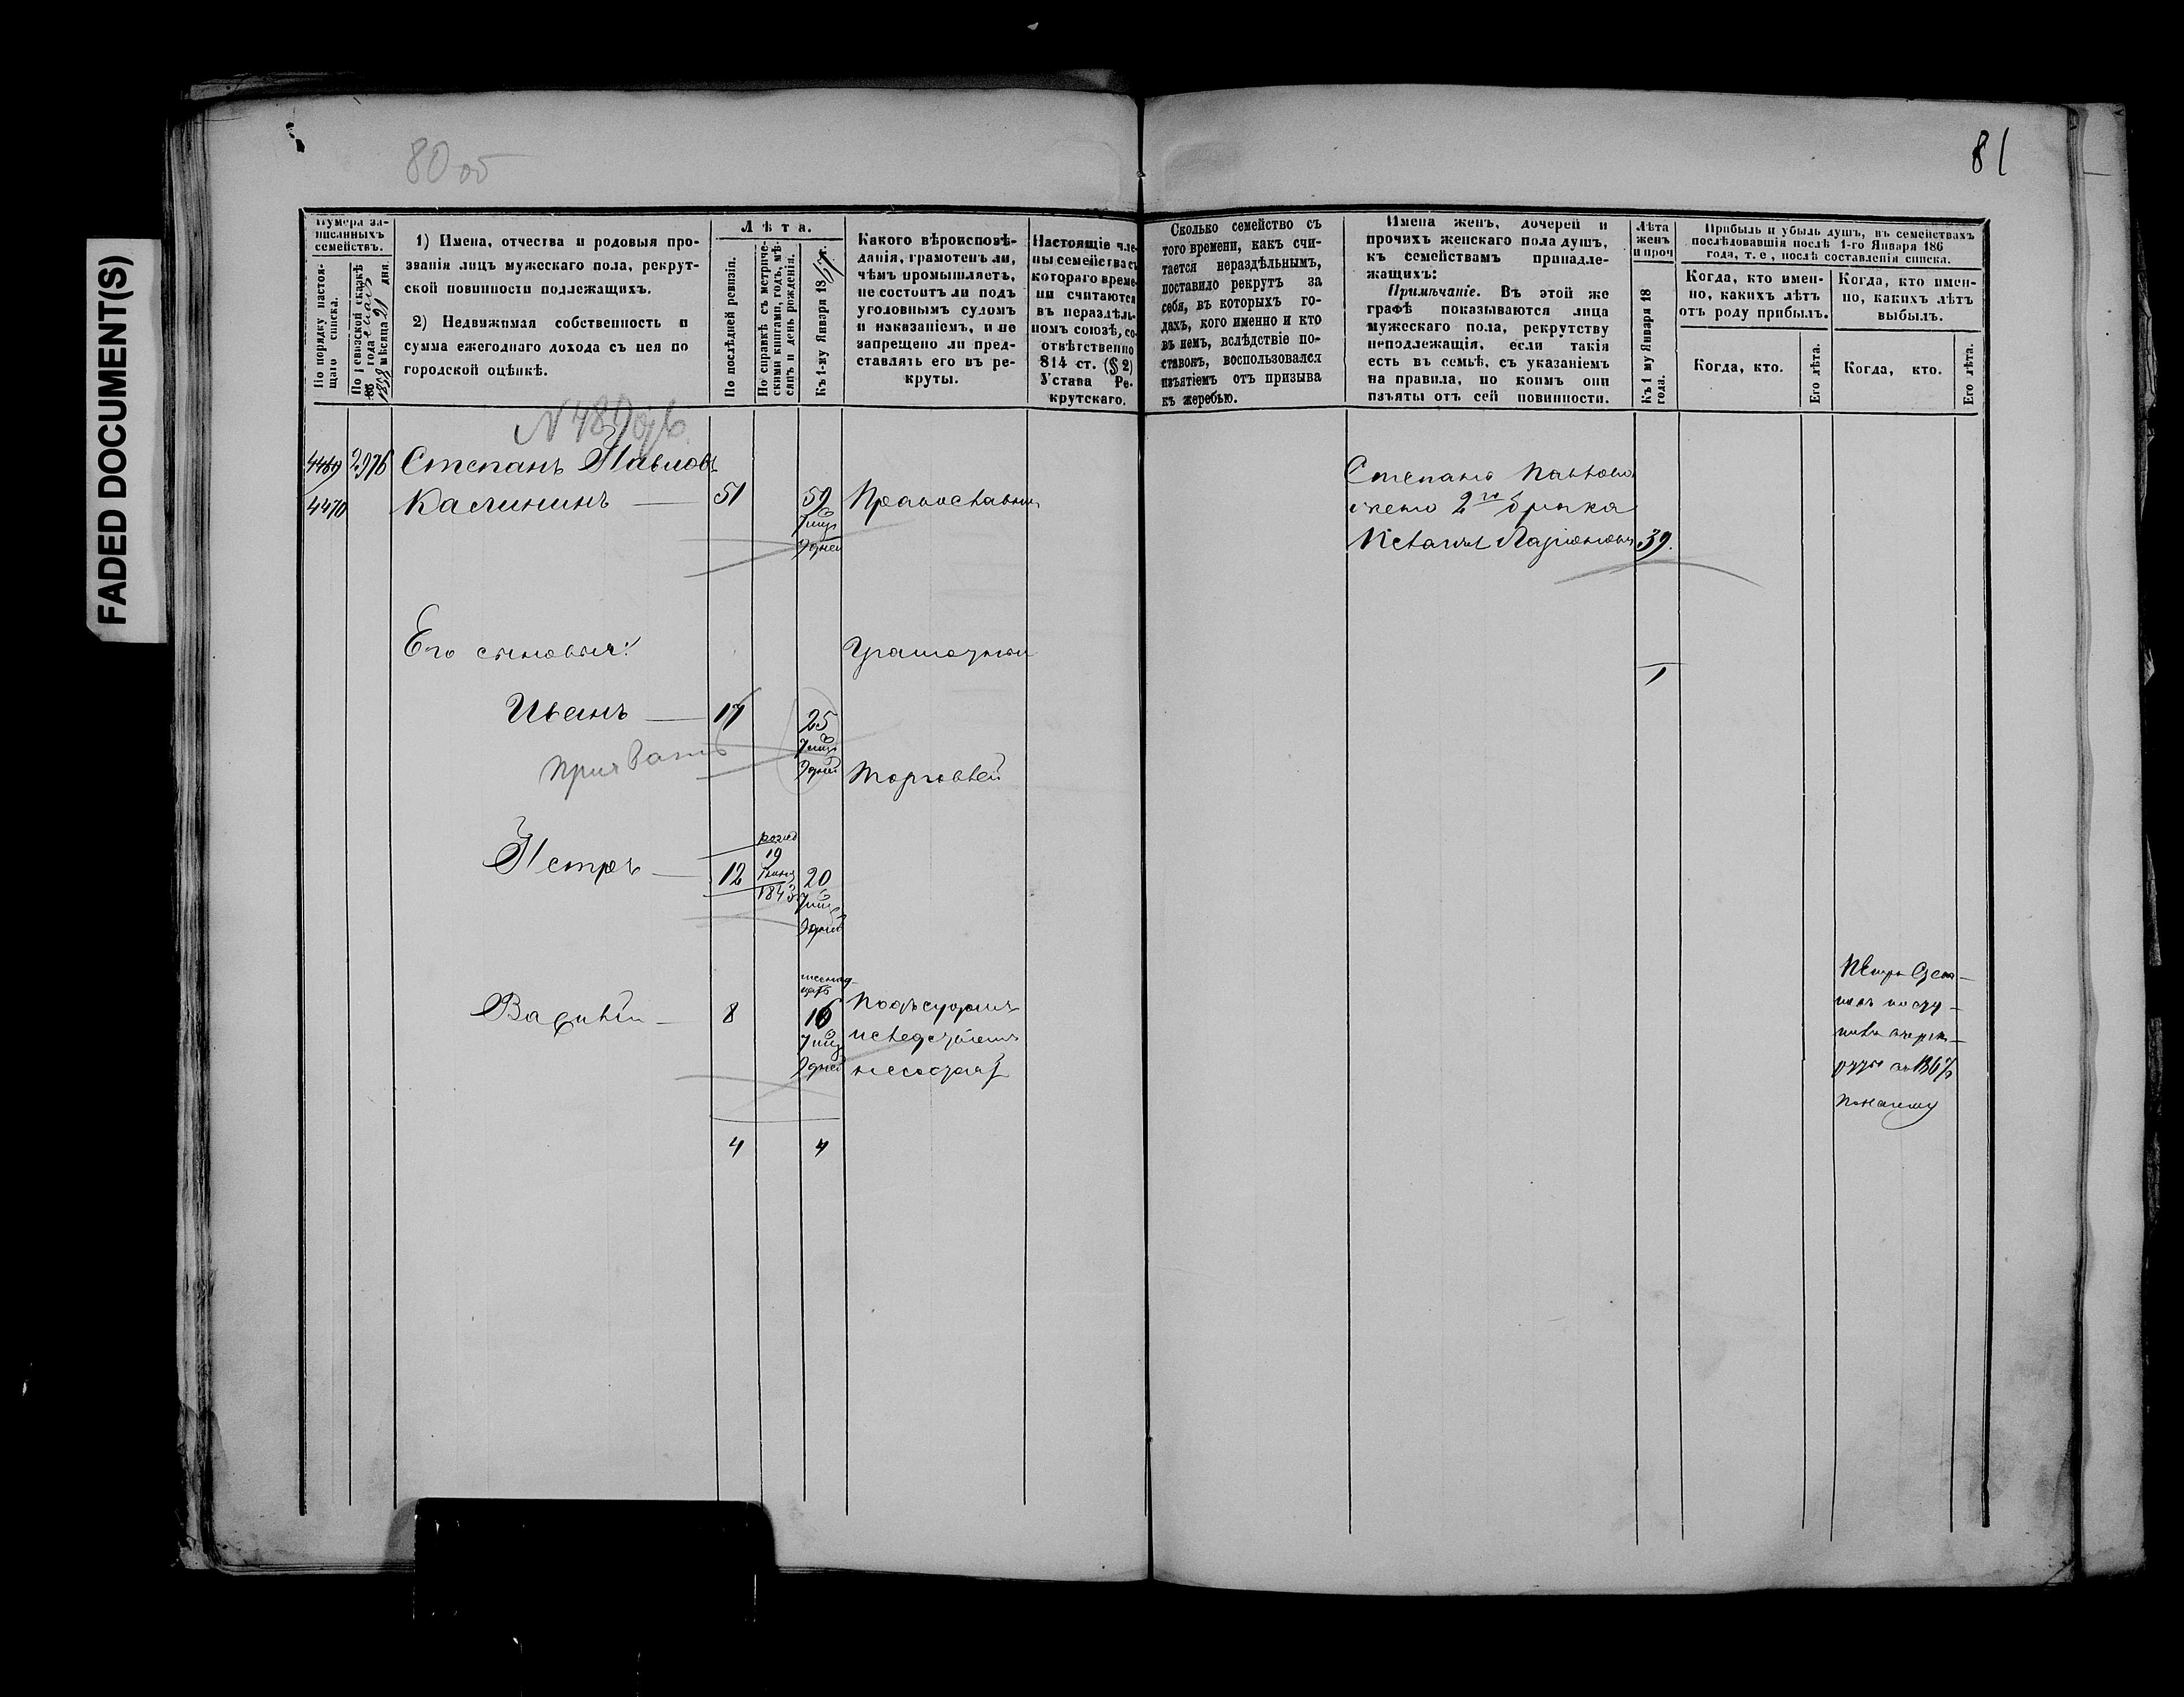 FADED DOCUMENT(S)
80 об
81
Нумера записанныхъ семействъ.
По порядку настоящаго списка.
По ревизской сказкѣ 1858 года мѣсяца 21 дня.
1) Имена, отчества и родовыя прозванія лицъ мужескаго пола, рекрутской повинности подлежащихъ.
2) Недвижимая собственность и сумма ежегоднаго дохода съ нея по городской оцѣнкѣ.
Лѣта.
По послѣдней ревизіи.
По справкѣ съ метрическими книгами, годъ, мѣсяцъ и день рожденія.
Къ 1-му Января 18
Какого вѣроисповѣданія, грамотенъ ли, чѣмъ промышляетъ, не состоитъ ли подъ уголовнымъ судомъ и наказаніемъ, и не запрещено ли представлять его въ рекруты.
Настоящіе члены семейства съ котораго времени считаются въ нераздѣльномъ союзѣ, соотвѣтственно 814 ст. (§ 2) Устава Рекрутскаго.
Сколько семейство съ того времени, какъ считается нераздѣльнымъ, поставило рекрутъ за себя, въ которыхъ годахъ, кого именно и кто въ немъ, вслѣдствіе поставокъ, воспользовался изъятіемъ отъ призыва къ жеребью.
Имена женъ, дочерей и прочихъ женскаго пола душъ, къ семействамъ принадлежащихъ:
Примѣчаніе. Въ этой же графѣ показываются лица мужескаго пола, рекрутству неподлежащія, если такія есть въ семьѣ, съ указаніемъ на правила, по коимъ они изъяты отъ сей повинности.
Лѣта женъ и проч
Къ 1 му Января 18 года.
Прибыль и убыль душъ, въ семействахъ послѣдовавшія послѣ 1-го Января 186 года, т. е, послѣ составленія списка.
Когда, кто именно, какихъ лѣтъ отъ роду прибылъ.
Когда, кто именно, какихъ лѣтъ выбылъ.
Когда, кто.
Его лѣта.
Когда, кто.
Его лѣта.
4469 2976 Степанъ Павловъ
4470 Калининъ — 51 59 Православный
7 мѣс
9 дней
Степана Павлова
жена 2го брака
Ларіонова 39.
Его сыновья: Грамотный
1
Иванъ — 17 25
7 мѣс
9 дней Торговлей
Петръ — 12 19 Іюня 1843 20
7 мѣс
9 дней
Василій — 8 16 Подъ судомъ
7 мѣс и слѣдствіемъ
9 дней не состоятъ
Петръ Степа-
новъ посту-
пилъ въ рек-
руты въ
4 4